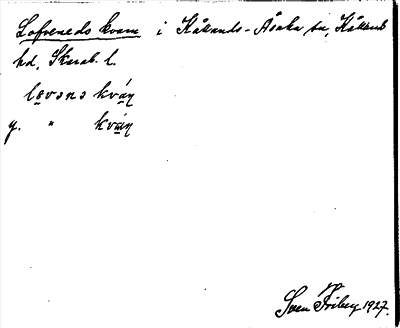 Lofveneds kvarn i Kållands-Åsaka sn, Kållands
hd, Skarab. l.
lovəns kván
y. " kván
Sven Friberg 1927.